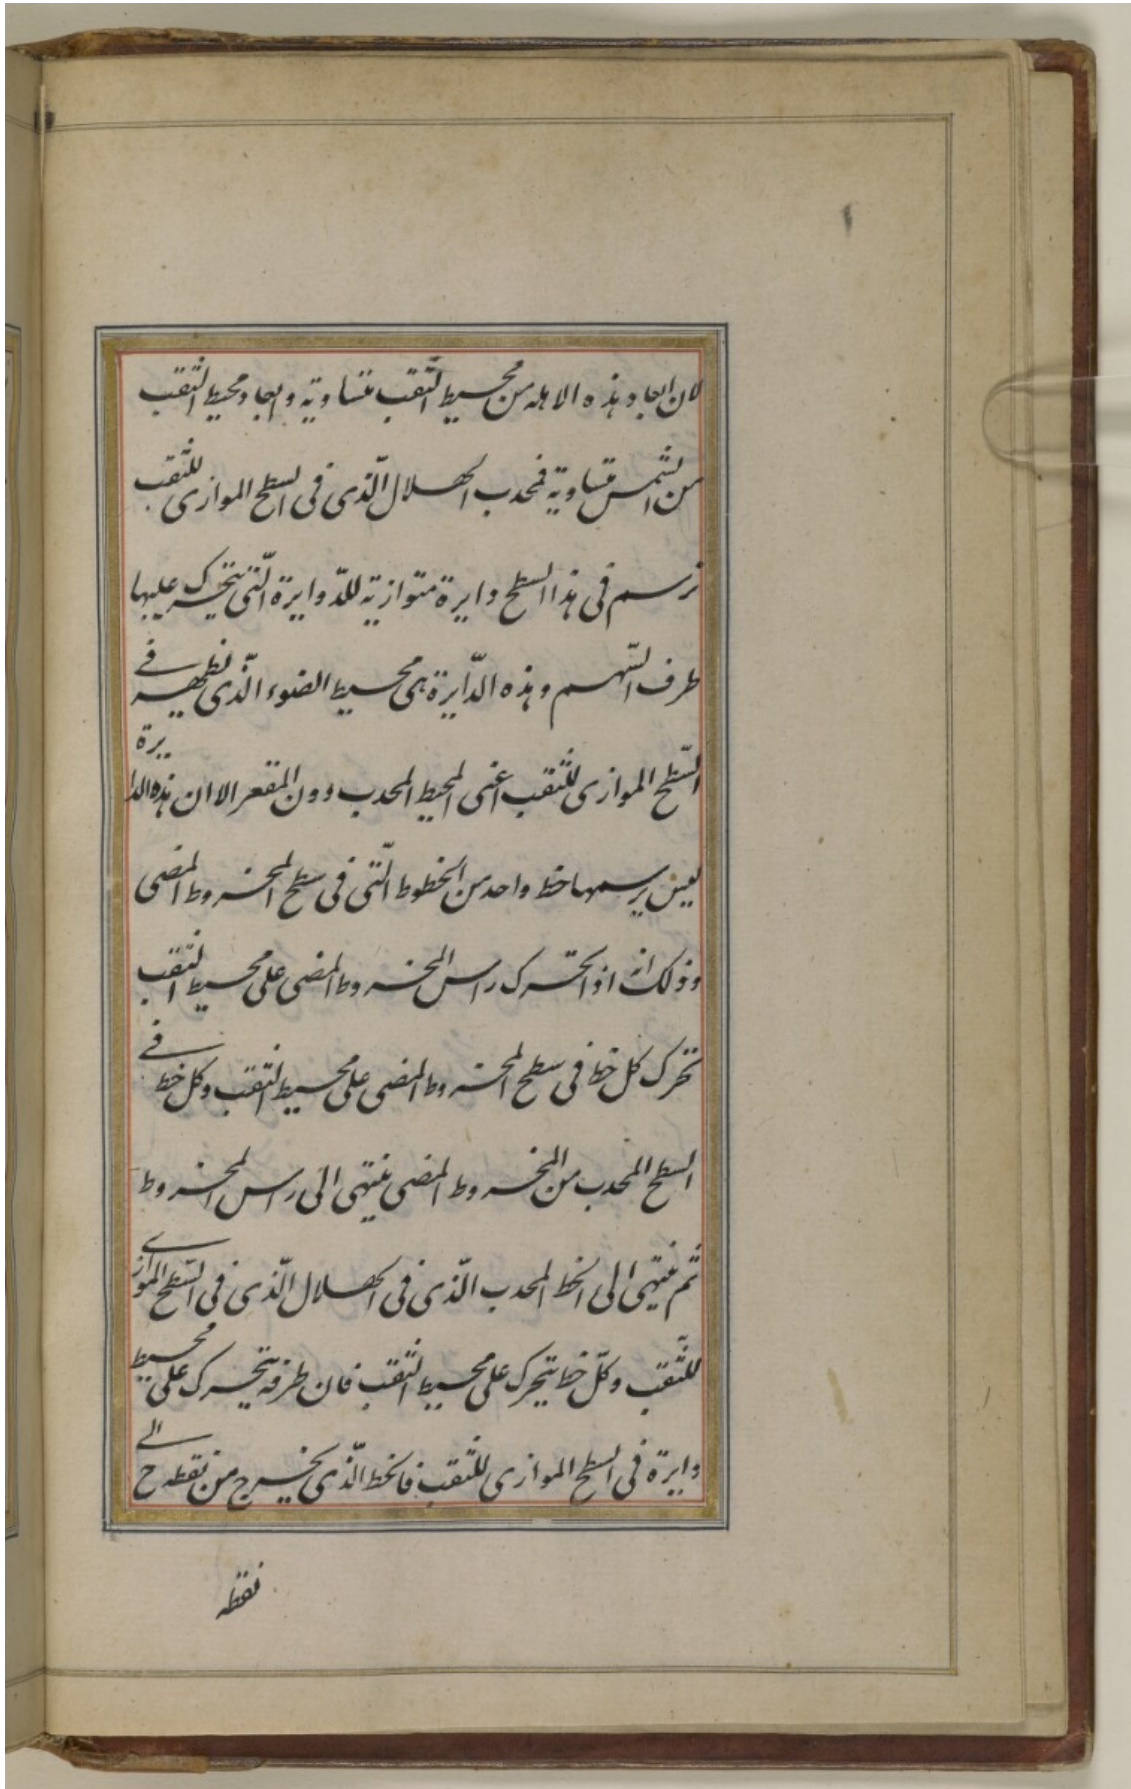 لان ابعاد هذه الاهله من محيط الثقب متساوية وابعاد محيط الثقب
من الشمس متساوية فمحدب الهلال الّذى فى السطح الموازى للثقب
ترسم فى هذا السطح دايرة متوازية للدّوايرة الّتى يتحرك عليها
طرف السّهم وهذه الدّايرة هى محيط الضوء الّذى يظهر فى
السّطح الموازى للثقب اعنى المحيط المحدب دون المقعر الا ان هذه الدايرة
ليس يرسمها خط واحد من الخطوط الّتى فى سطح المخروط المضى
وذلك انه اذا تحرك راس المخروط المضى على محيط الثقب
تحرك كل خط فى سطح المخروط المضى على محيط الثقب وكل خط فى
السطح المحدب من المخروط المضى ينتهى الى راس المخروط
ثم ينتهى الى الخط المحدب الّذى فى الهلال الّذى فى السّطح الموازى
للثّقب وكلّ خط يتحرك على محيط الثقب فان طرفه يتحرك على محيط
دايرة فى السطح الموازى للثقب فالخط الّذى يخرج من نقطه ح الى
نقطه